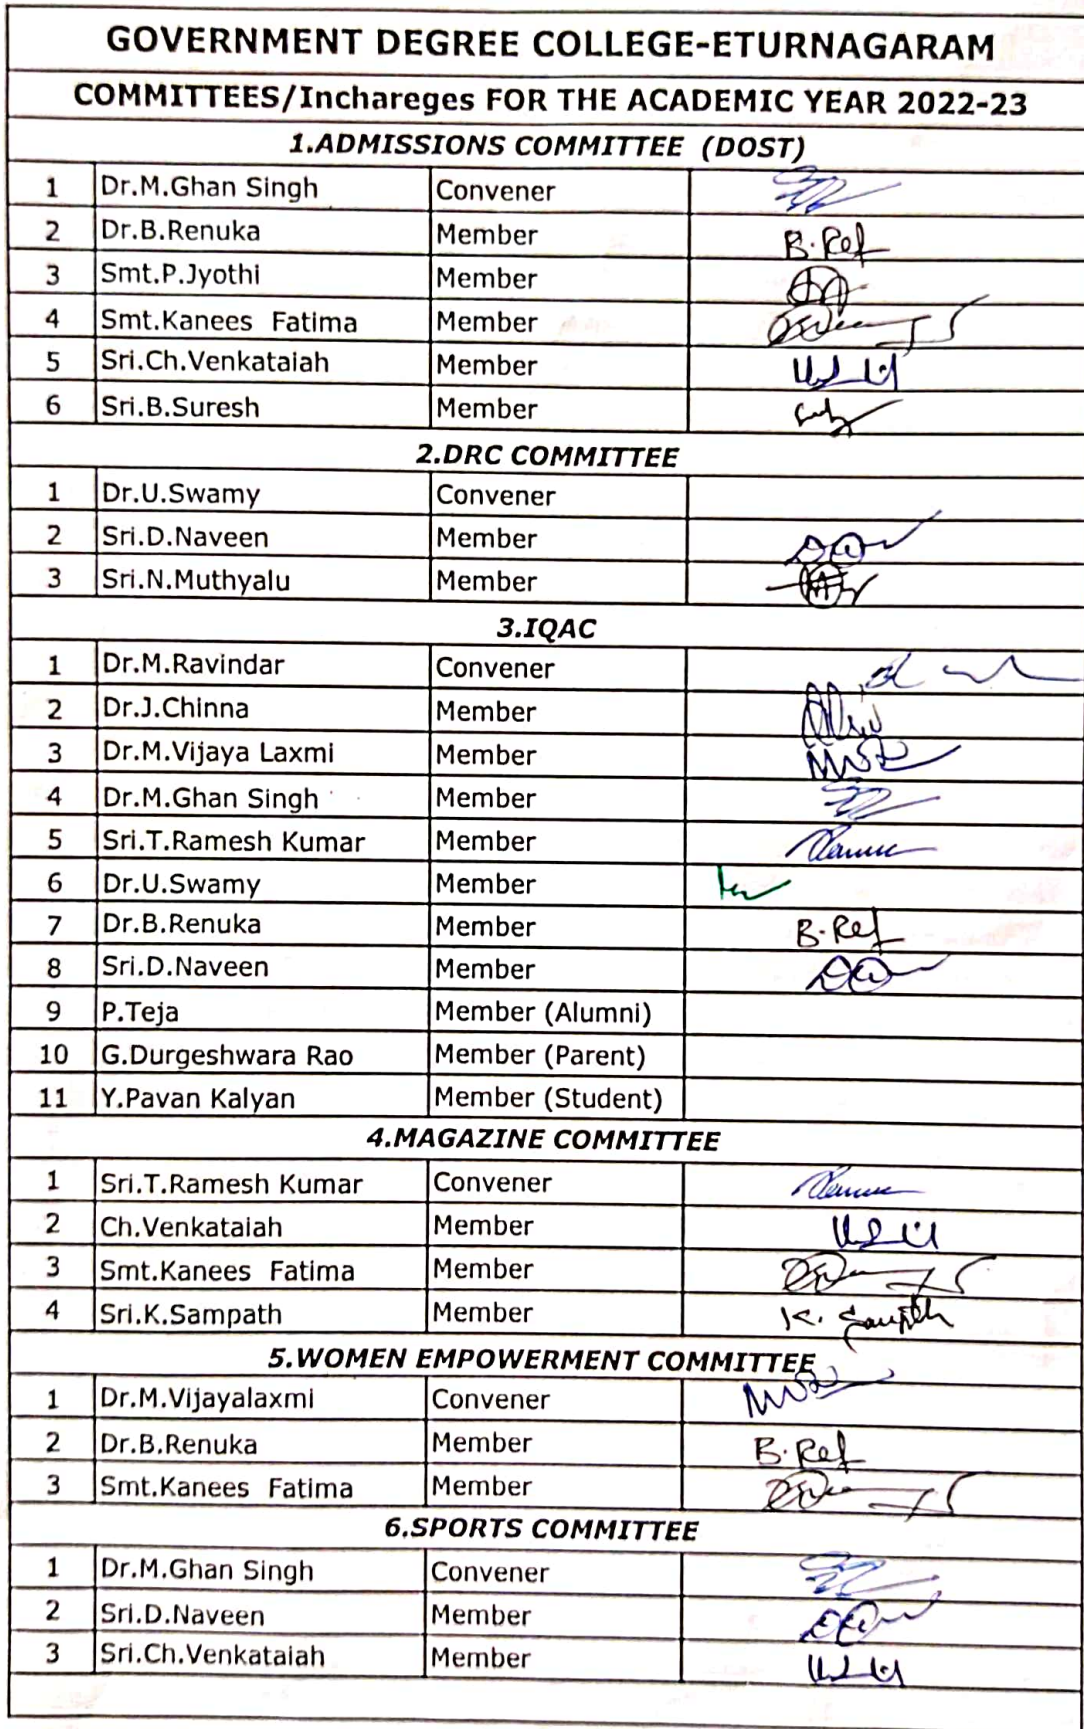 GOVERNMENT DEGREE COLLEGE-ETURNAGARAM
COMMITTEES/Inchareges FOR THE ACADEMIC YEAR 2022-23
1.ADMISSIONS COMMITTEE (DOST)
1 Dr.M.Ghan Singh Convener
2 Dr.B.Renuka Member
3 Smt.P.Jyothi Member
4 Smt.Kanees Fatima Member
5 Sri.Ch.Venkataiah Member
6 Sri.B.Suresh Member
2.DRC COMMITTEE
1 Dr.U.Swamy Convener
2 Sri.D.Naveen Member
3 Sri.N.Muthyalu Member
3.IQAC
1 Dr.M.Ravindar Convener
2 Dr.J.Chinna Member
3 Dr.M.Vijaya Laxmi Member
4 Dr.M.Ghan Singh Member
5 Sri.T.Ramesh Kumar Member
6 Dr.U.Swamy Member
7 Dr.B.Renuka Member
8 Sri.D.Naveen Member
9 P.Teja Member (Alumni)
10 G.Durgeshwara Rao Member (Parent)
11 Y.Pavan Kalyan Member (Student)
4.MAGAZINE COMMITTEE
1 Sri.T.Ramesh Kumar Convener
2 Ch.Venkataiah Member
3 Smt.Kanees Fatima Member
4 Sri.K.Sampath Member K. Sampath
5.WOMEN EMPOWERMENT COMMITTEE
1 Dr.M.Vijayalaxmi Convener
2 Dr.B.Renuka Member
3 Smt.Kanees Fatima Member
6.SPORTS COMMITTEE
1 Dr.M.Ghan Singh Convener
2 Sri.D.Naveen Member
3 Sri.Ch.Venkataiah Member